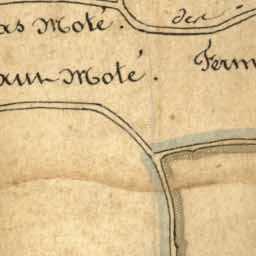 as Moté.
des
Ferm
aut Moté.